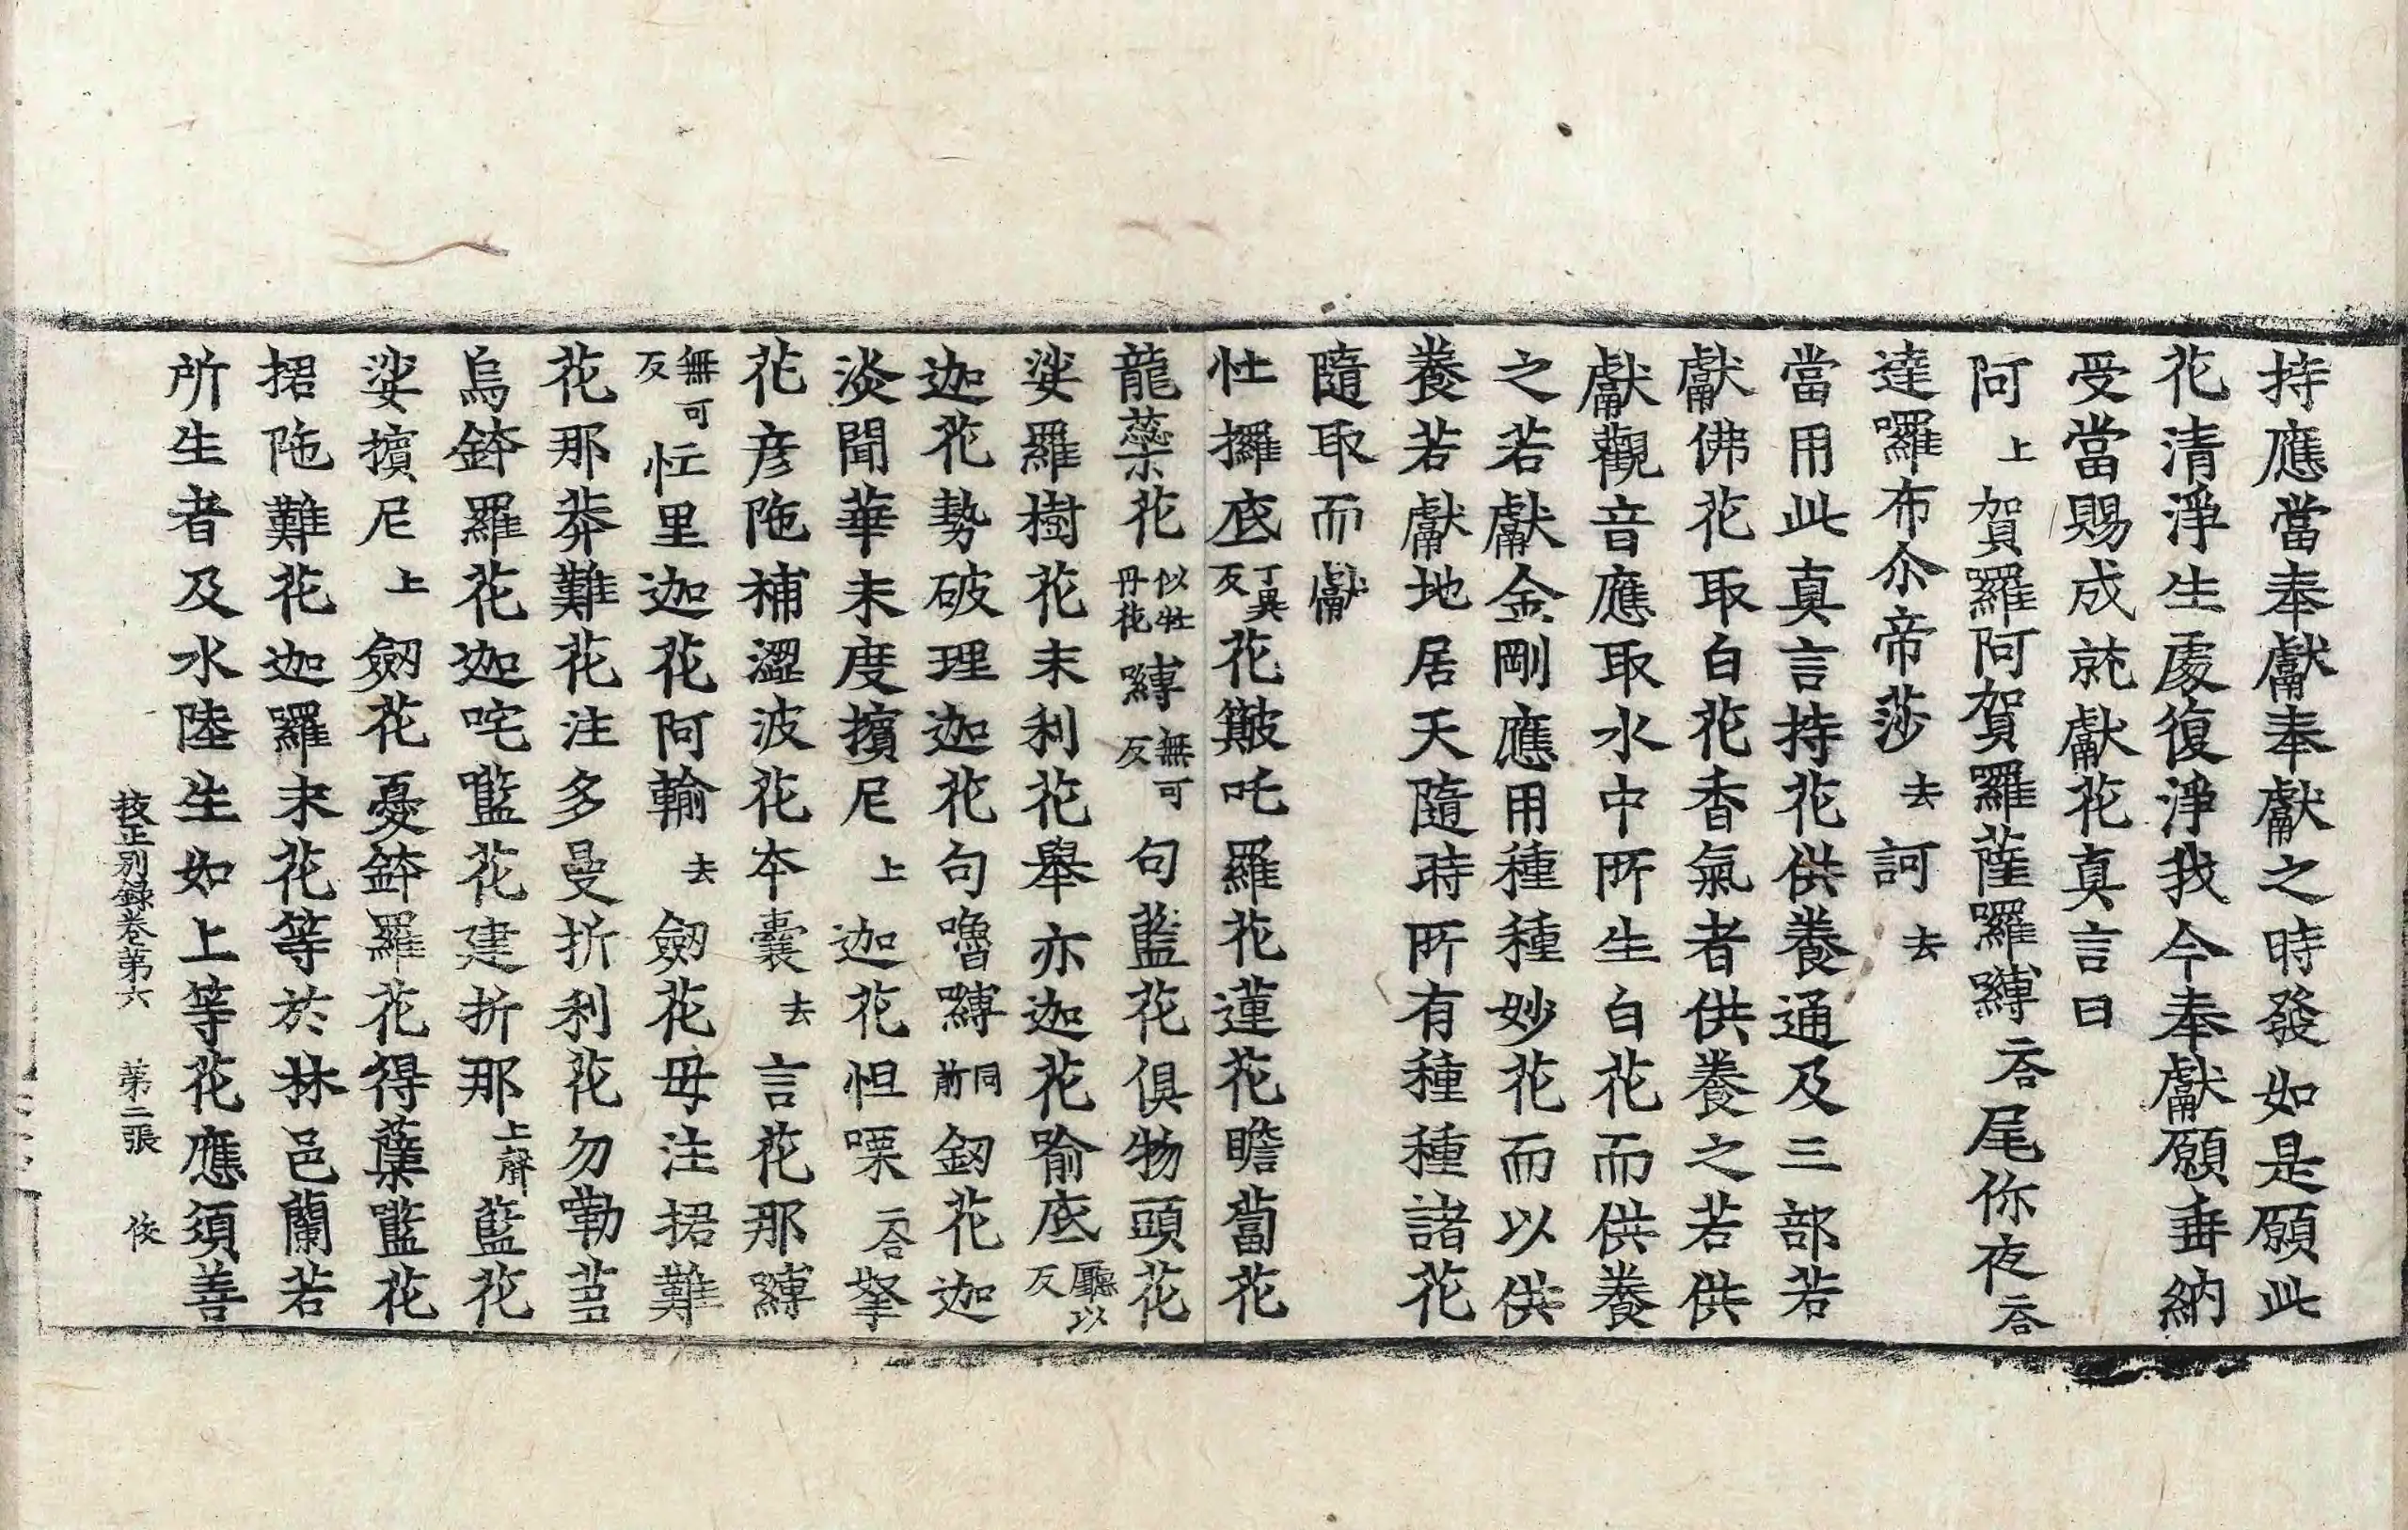 持應當奉獻奉獻之時發如是願此
花清淨生處復淨我今奉獻願垂納
受當賜成就獻花真言曰
阿上賀羅阿賀羅薩囉嚩二合尾你夜二合
達囉布尒帝莎去訶去
當用此真言持花供養通及三部若
獻佛花取白花香氣者供養之若供
獻觀音應取水中所生白花而供養
之若獻金剛應用種種妙花而以供
養若獻地居天隨時所有種種諸花
隨取而獻
忚攞底丁異反花簸吒羅花蓮花瞻蔔花
龍蘂花似牡丹花嚩無可反句藍花俱物頭花
娑羅樹花末利花舉亦迦花喻底廳以反
迦花勢破理迦花句嚕嚩同前釰花迦
淡聞華末度擯尼上迦花怛㗚二合拏
花彦陁補澀波花本囊去言花那嚩
無可反忙里迦花阿輸去劒花毋注捃難
花那莾難花注多曼折利花勿勒莒
烏鉢羅花迦咤㘕花建折那上聲藍花
娑擯尼上劒花憂鉢羅花得蘖㘕花
捃陁難花迦羅末花等於林邑蘭若
所生者及水陸生如上等花應須善
挍正別錄卷第六　第二張　俊